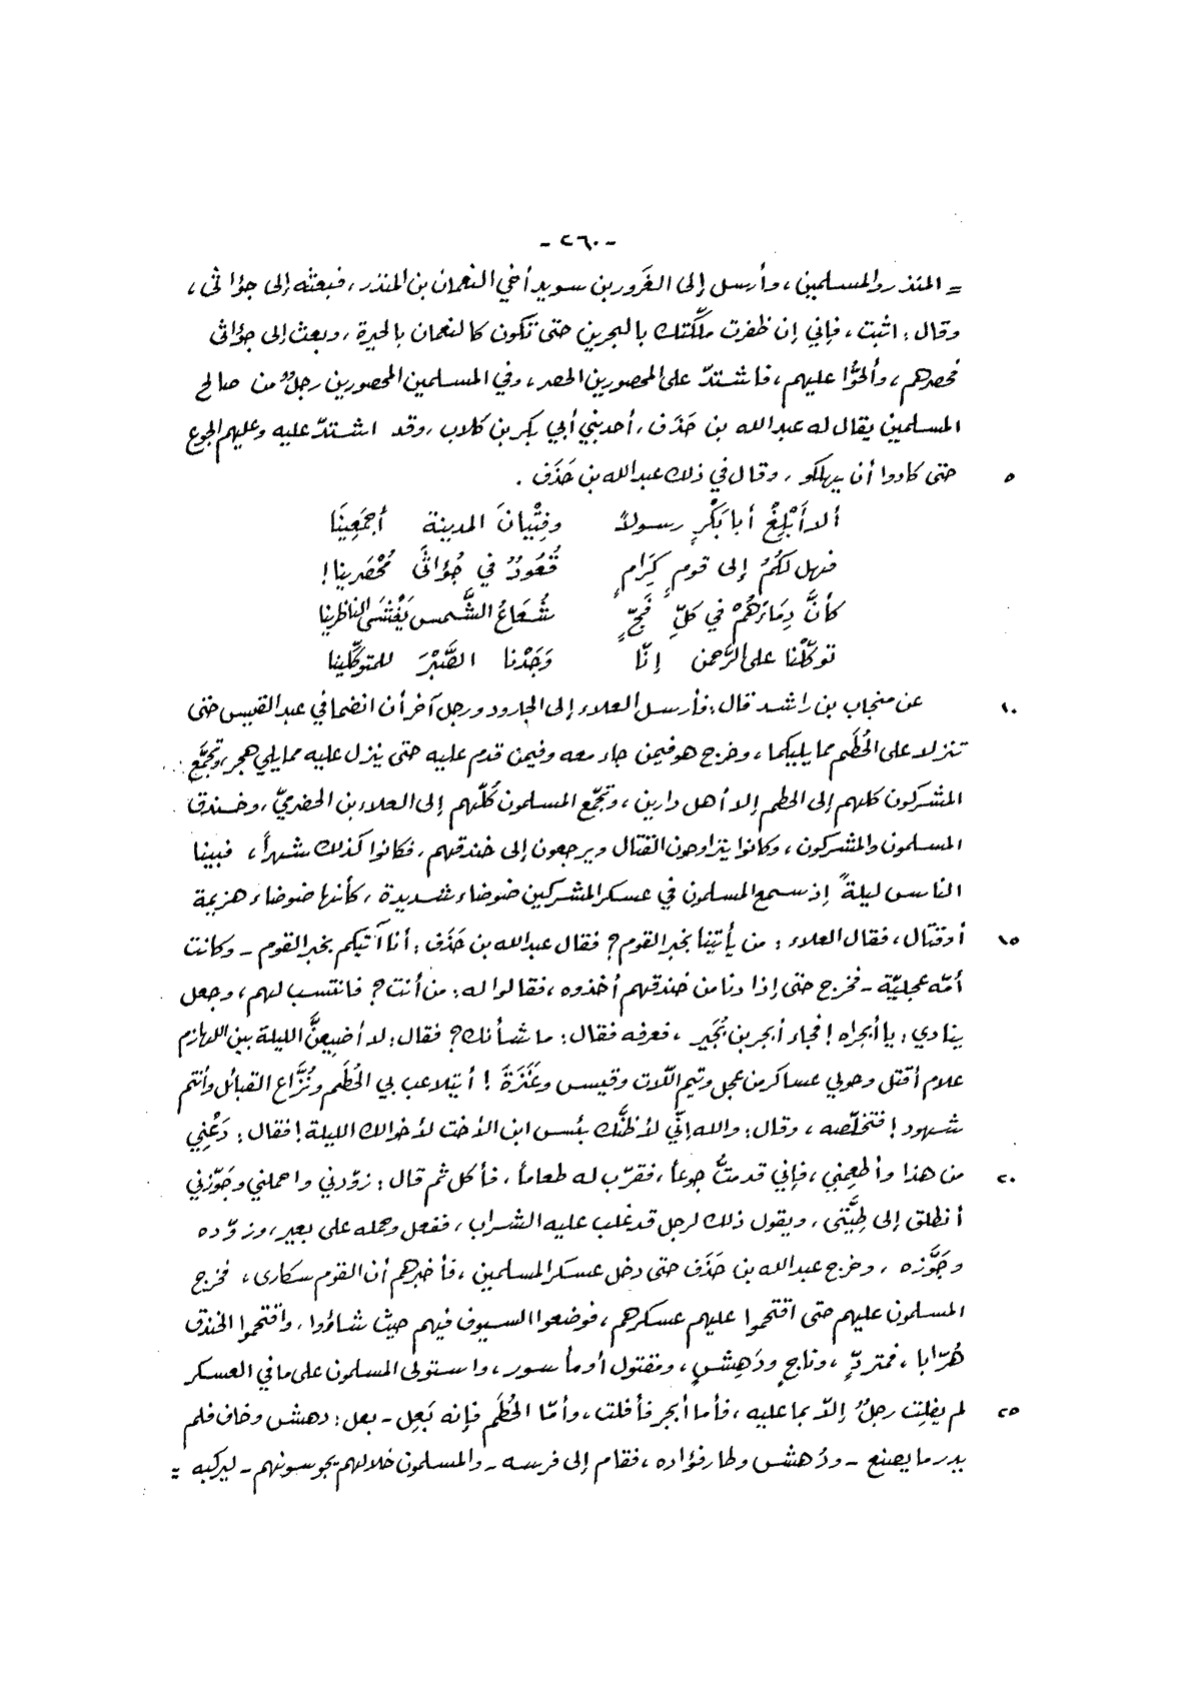 - ٢٦٠ -
= المنذر والمسلمين، وأرسل إلى الغَرور بن سويد أخي النعمان بن المنذر، فبعثه إلى جؤاثى،
وقال: اثبت، فإني إن ظفرت ملّكتك بالبحرين حتى تكون كالنعمان بالحيرة، وبعث إلى جؤاثى
فحصرهم، وألحّوا عليهم، فاشتدّ على المحصورين الحصر، وفي المسلمين المحصورين رجلٌ من صالح
المسلمين يقال له عبدالله بن حَذَف، أحد بني أبي بكر بن كلاب، وقد اشتدّ عليه وعليهم الجوع
٥ حتى كادوا أن يهلكو، وقال في ذلك عبدالله بن حَذَف .
ألا أَبْلِغْ أبا بَكْرٍ رسولاً وفِتْيانَ المدينة أجمَعِينَا
فهل لكُمُ إلى قومٍ كِرَامٍ قُعُودٌ في جُؤاثَى مُحْصَرينا!
كأنَّ دِمَاءَهُمْ في كلِّ فَجٍّ شُعَاعُ الشَّمس يَغْشَى الناظرينا
توكّلْنا على الرّحمن إنّا وَجَدْنا الصَّبْرَ للمتوكّلينا
١٠ عن منجاب بن راشد قال: فأرسل العلاء إلى الجارود ورجل آخر أن انضما في عبد القيس حتى
تنزلا على الحُطَم مما يليكما، وخرج هو فيمن جاء معه وفيمن قدم عليه حتى ينزل عليه مما يلي هجر، وتجمَّع
المشركون كلهم إلى الحطم إلا أهل دارين، وتجمّع المسلمون كُلّهم إلى العلاء بن الحضرميّ، وخندق
المسلمون والمشركون، وكانوا يتراوحون القتال ويرجعون إلى خندقهم، فكانوا كذلك شهراً، فبينا
الناس ليلةً إذ سمع المسلمون في عسكر المشركين ضوضاء شديدة، كأنها ضوضاء هزيمة
١٥ أو قتال، فقال العلاء: من يأتينا بخبر القوم؟ فقال عبدالله بن حَذَف: أنا آتيكم بخبر القوم - وكانت
أمّه عجليّة - فخرج حتى إذا دنا من خندقهم أخذوه، فقالوا له: من أنت؟ فانتسب لهم، وجعل
ينادي: يا أبجراه! فجاء أبجر بن بُجَير، فعرفه فقال: ما شأنك؟ فقال: لا أضيعنَّ الليلة بين اللهازم
علام أقتل وحولي عساكر من عجل وتيم اللّات وقيس وعَنَزَةَ! أيتلاعب بي الحُطَم ونُزَّاع القبائل وأنتم
شهود! فتخلّصه، وقال: والله إنّي لأظنّك بئس ابن الأخت لأخوالك الليلة! فقال: دَعْنِي
٢٠ من هذا وأطعِمني، فإني قد متُّ جوعاً، فقرّب له طعاماً، فأكل ثم قال: زوّدني واحملني وجَوّزني
أنطلق إلى طِيَّتي، ويقول ذلك لرجل قد غلب عليه الشراب، ففعل وحمله على بعير، وزوّده
وجَوَّزه، وخرج عبدالله بن حَذَف حتى دخل عسكر المسلمين، فأخبرهم أن القوم سكارى، فخرج
المسلمون عليهم حتى اقتحموا عليهم عسكرهم، فوضعوا السيوف فيهم حيث شاؤوا، واقتحموا الخندق
هُرّابا، فمتردٍّ، وناجٍ ودَهِشٍ، ومقتول أو مأسور، واستولى المسلمون على ما في العسكر
٢٥ لم يفلِت رجلٌ إلّا بما عليه، فأما أبجر فأفلت، وأمّا الحُطَم فإنه بَعِل - بعل: دهش وخاف فلم
يدر ما يصنع - ودُهش وطار فؤاده، فقام إلى فرسه - والمسلمون خلالهم يجوسونهم - ليركبه =